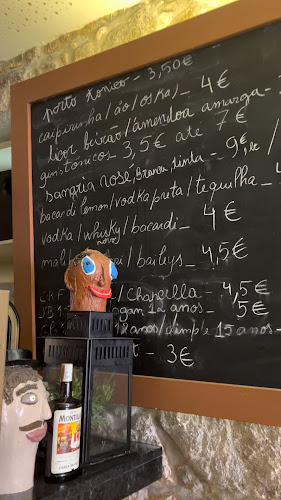 porto tonico - 3,50€
caipirinha/ão/oska) - 4€
licor beirão/amendoa amarga -
gin: tónicos - 3,5€ até 7€
sangria rosé, branca, tinta - 9€, lt /
bacardi lemon/vodka preta/tequilha -
vodka/whisky/bacardi - 4€
novo
/baileys - 4,5€
/Chancella - 4,5€
12 anos - 5€
12 anos/dimple 15 anos -
- 3€
MONTI